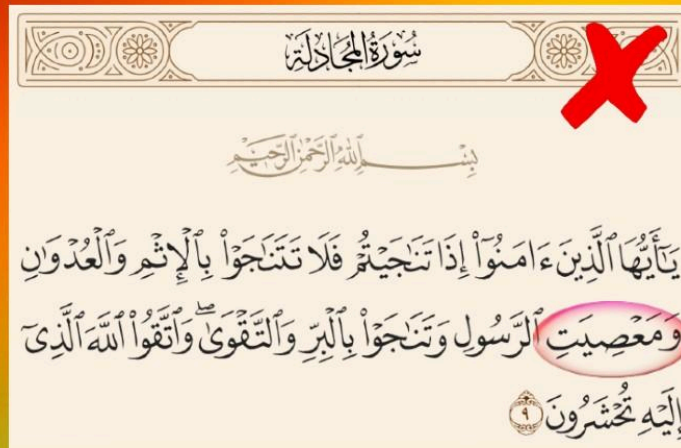 سُورَةُ المُجَادلَةِ
بِسْمِ ٱللَّهِ ٱلرَّحْمَٰنِ ٱلرَّحِيمِ
يَٰٓأَيُّهَا ٱلَّذِينَ ءَامَنُوٓا۟ إِذَا تَنَٰجَيْتُمْ فَلَا تَتَنَٰجَوْا۟ بِٱلْإِثْمِ وَٱلْعُدْوَٰنِ
وَمَعْصِيَتِ ٱلرَّسُولِ وَتَنَٰجَوْا۟ بِٱلْبِرِّ وَٱلتَّقْوَىٰ ۖ وَٱتَّقُوا۟ ٱللَّهَ ٱلَّذِىٓ
إِلَيْهِ تُحْشَرُونَ ٩